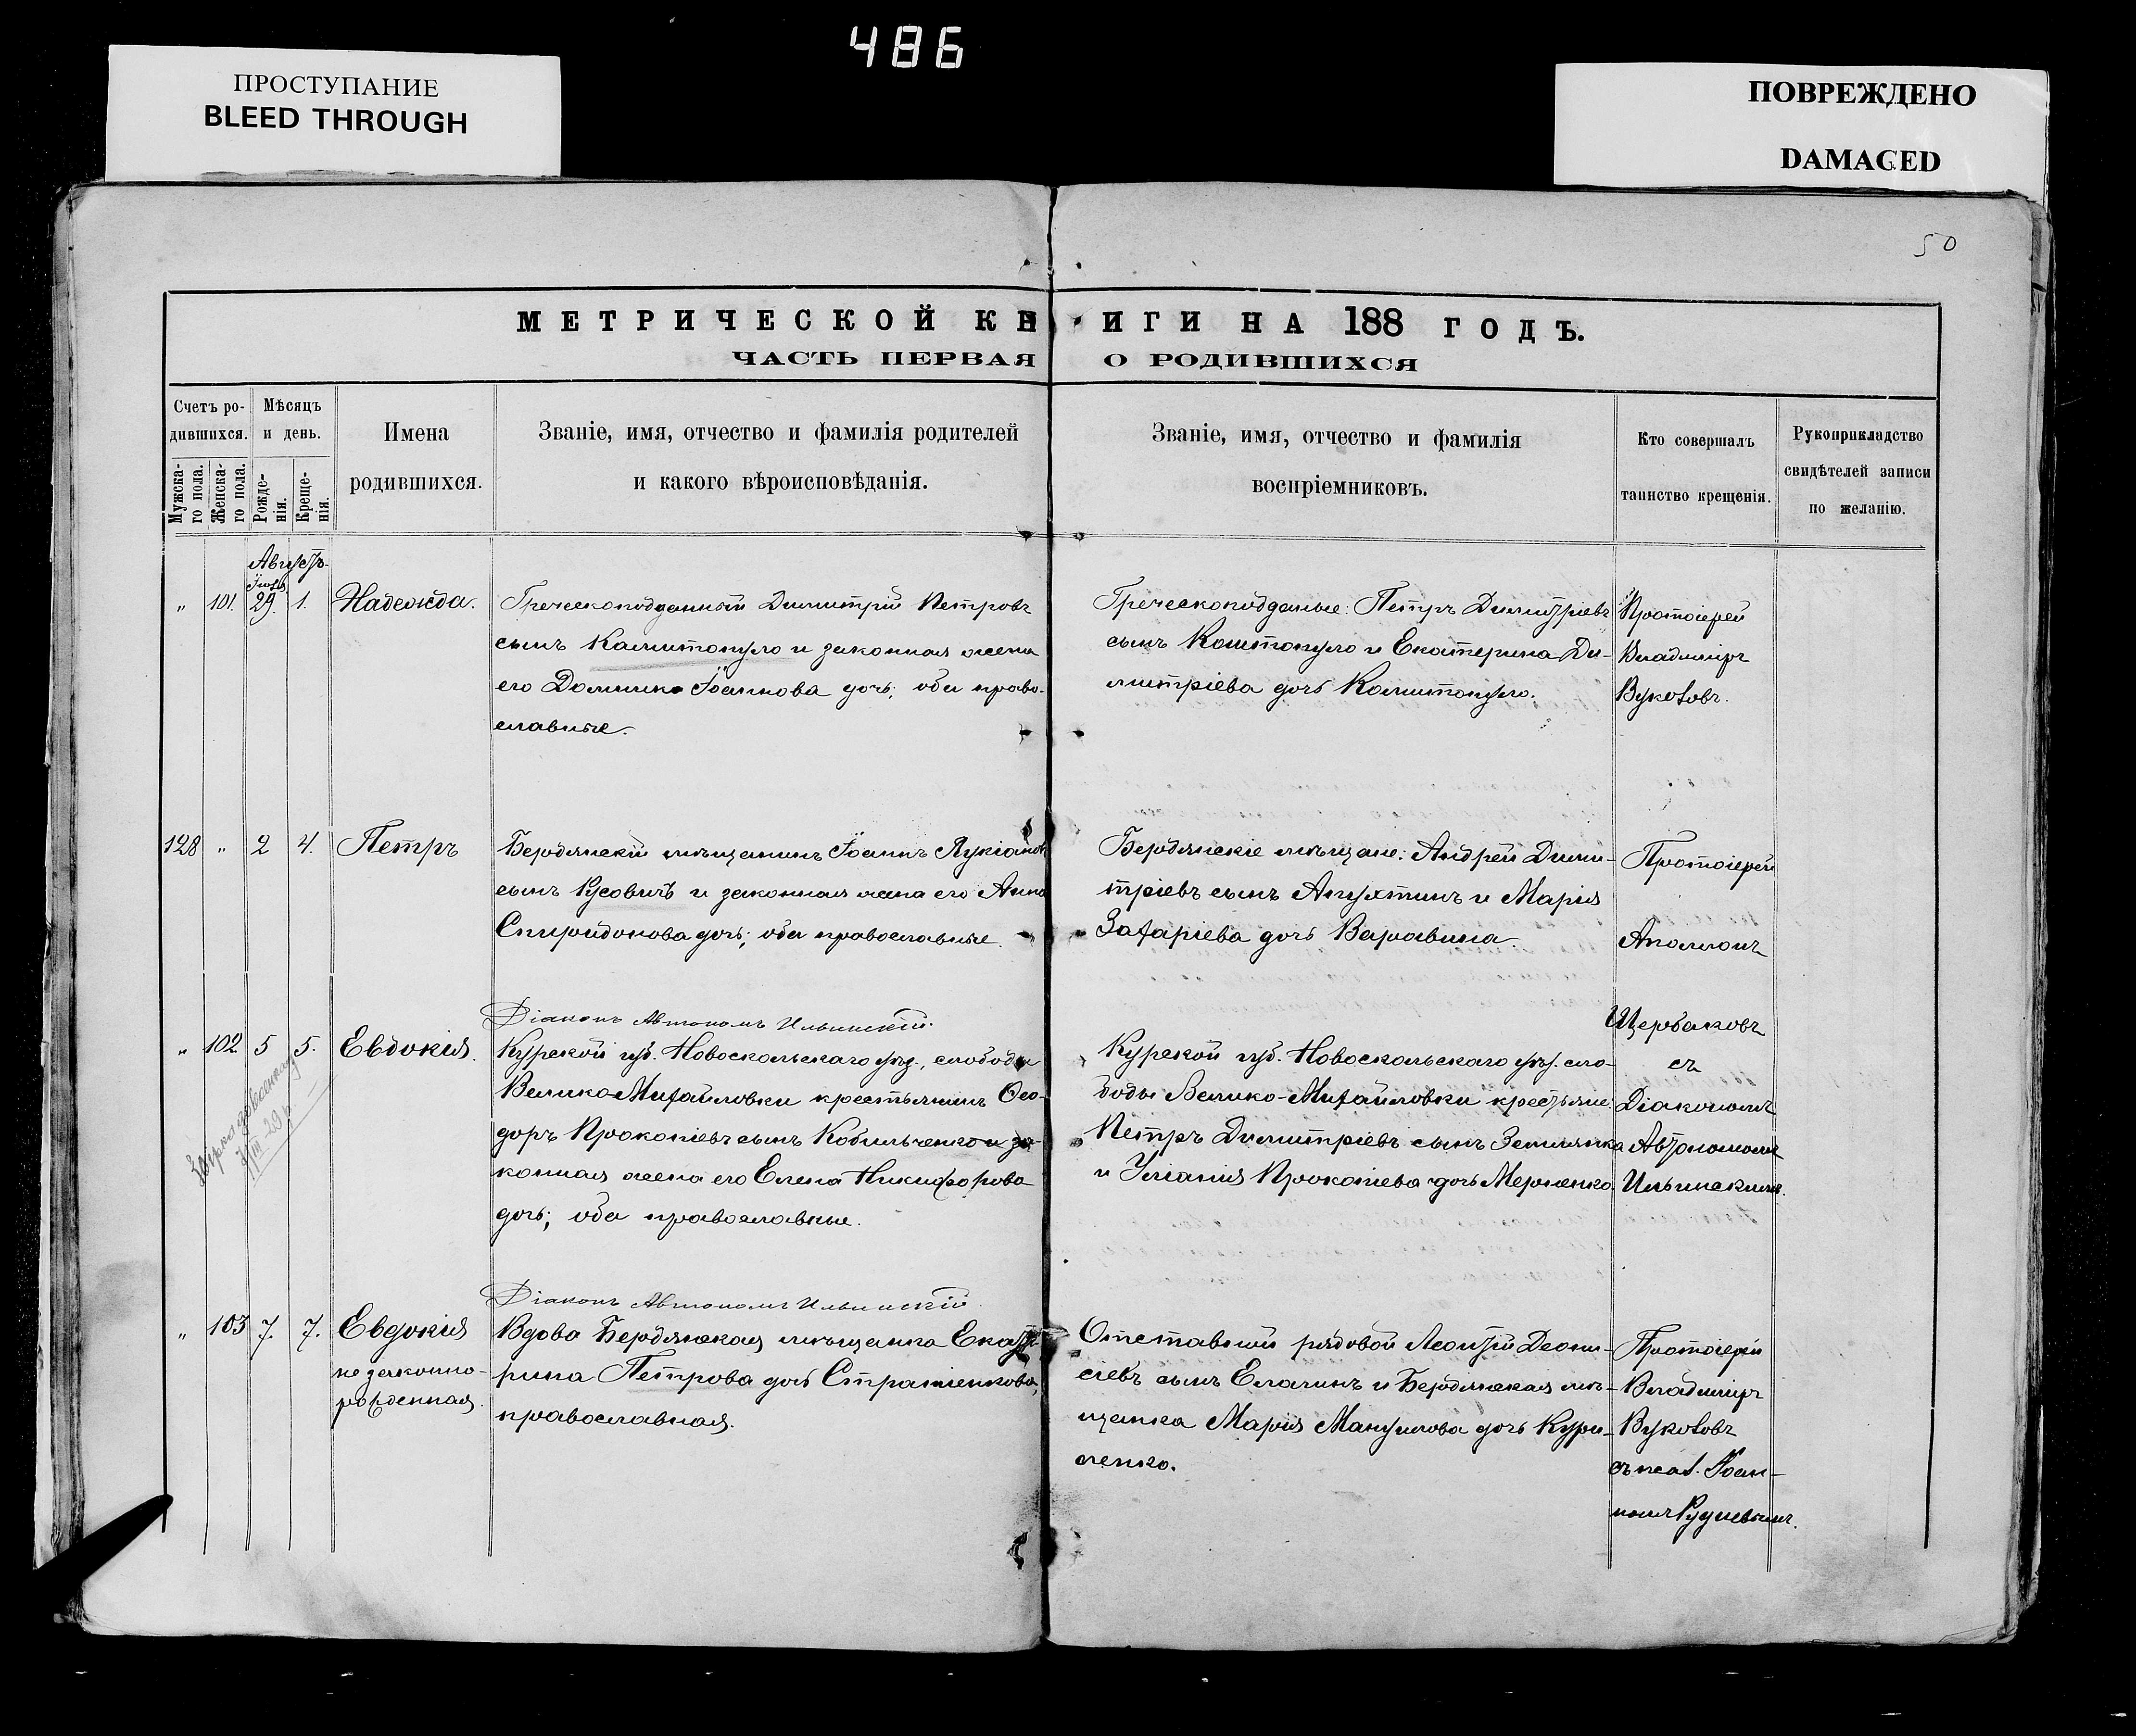 486
ПРОСТУПАНИЕ
BLEED THROUGH
ПОВРЕЖДЕНО
DAMAGED
50
МЕТРИЧЕСКОЙ КНИГИ НА 188 ГОДЪ.
ЧАСТЬ ПЕРВАЯ О РОДИВШИХСЯ
Счетъ ро-
дившихся.
Мужска-
го пола.
Женска-
го пола.
Мѣсяцъ
и день.
Рожде-
нія.
Креще-
нія.
Имена
родившихся.
Званіе, имя, отчество и фамилія родителей
и какого вѣроисповѣданія.
Званіе, имя, отчество и фамилія
воспріемниковъ.
Кто совершалъ
таинство крещенія.
Рукоприкладство
свидѣтелей записи
по желанію.
Августъ
Іюля
" 101. 29. 1. Надежда.
Греческоподданный Димитрій Петровъ
сынъ Калитопуло и законная жена
его Домника Іоаннова дочь; оба право-
славные.
Греческоподданые: Петръ Димитріевъ
сынъ Калитопуло и Екатерина Ди-
митріева дочь Калитопуло.
Протоіерей
Владиміръ
Вуколовъ.
128 " 2 4. Петръ
Бердянскій мѣщанинъ Іоаннъ Лукіановъ
сынъ Русовичъ и законная жена его Анна
Спиридонова дочь; оба православные.
Бердянскіе мѣщане: Андрей Дими-
тріевъ сынъ Апухтинъ и Марія
Захаріева дочь Варавина.
Протоіерей
Аполлонъ
Щербаковъ
съ
Діакономъ
Автономомъ
Ильинскимъ.
Діаконъ Автономъ Ильинскій.
" 102 5 5. Евдокія.
Курской губ. Новоскольскаго уѣз., слободы
Велико-Михайловки крестьянинъ Ѳео-
доръ Прокопіевъ сынъ Кобильченко и за-
конная жена его Елена Никифорова
дочь; оба православные.
Курской губ. Новоскольскаго уѣз. сло-
боды Велико-Михайловки крестьяне:
Петръ Димитріевъ сынъ Землянка
и Уліанія Прокопіева дочь Мерненко.
Діаконъ Автономъ Ильинскій
" 103 7. 7. Евдокія
незаконно-
рожденная.
Вдова Бердянская мѣщанка Екате-
рина Петрова дочь Стратіенкова,
православная.
Отставной рядовой Леонтій Діони-
сіевъ сынъ Елагинъ и Бердянская мѣ-
щанка Марія Мануилова дочь Кури-
ленко.
Протоіерей
Владиміръ
Вуколовъ
съ псал. Іоан-
номъ Рудневымъ.